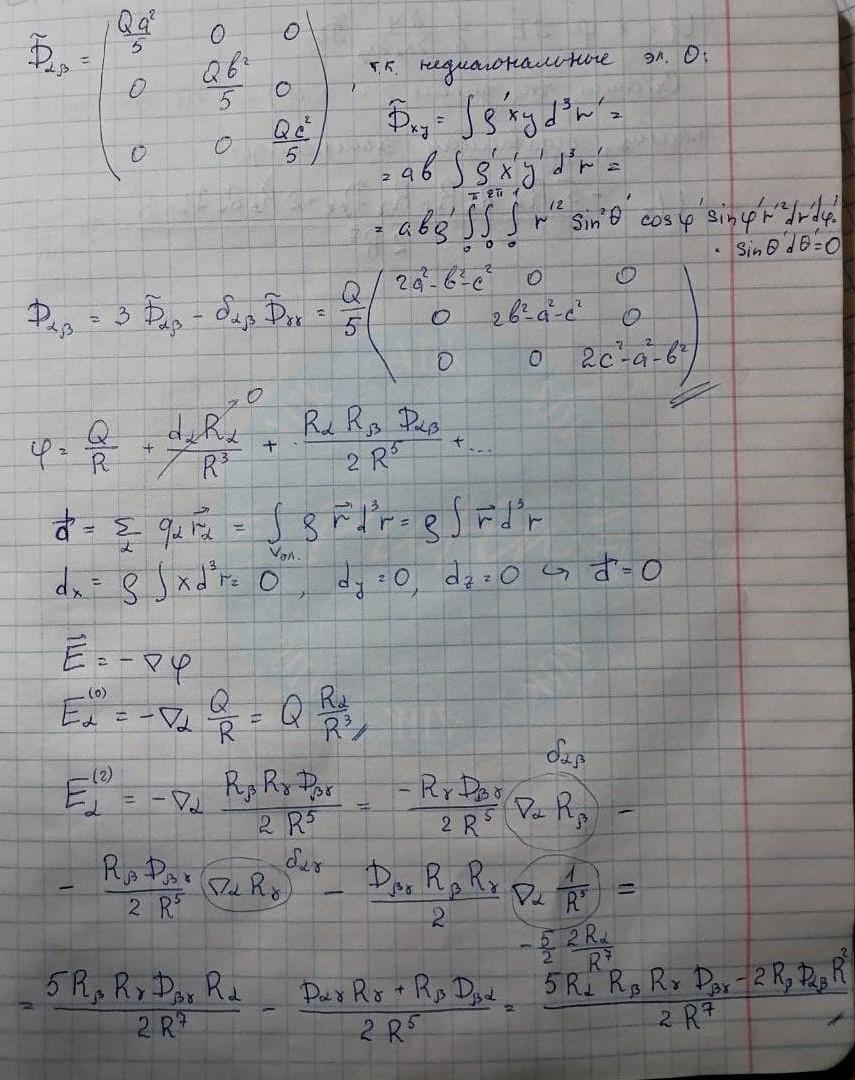 D̃αβ = ( Qa²/5 0 0
0 Qb²/5 0
0 0 Qc²/5 ) , т.к. недиагональные эл. 0:
D̃xy = ∫ρ'xy d³r' =
= ab ∫ρ'x'y' d³r' =
= abρ' ∫₀^π ∫₀^2π ∫₀^1 r'² sin²θ' cosφ' sinφ' r'² dr'dφ'·
· sinθ'dθ' = 0
Dαβ = 3 D̃αβ − δαβ D̃γγ = Q/5 ( 2a²−b²−c² 0 0
0 2b²−a²−c² 0
0 0 2c²−a²−b² )
φ = Q/R + dαRα/R³ →0 + RαRβ Dαβ / 2R⁵ + ...
d⃗ = Σα qα r⃗α = ∫Vэл. ρ r⃗ d³r = ρ ∫ r⃗ d³r
dx = ρ ∫ x d³r = 0 , dy = 0, dz = 0 ↪ d⃗ = 0
E⃗ = −∇φ
Eα⁽⁰⁾ = −∇α Q/R = Q Rα/R³
δαβ
Eα⁽²⁾ = −∇α RβRγDβγ / 2R⁵ = −RγDβγ / 2R⁵ ∇αRβ −
− RβDβγ / 2R⁵ ∇αRγ δαγ − DβγRβRγ / 2 ∇α 1/R⁵ =
−5/2 2Rα/R⁷
= 5RβRγDβγRα / 2R⁷ − DαγRγ + RβDβα / 2R⁵ = 5RαRβRγDβγ − 2RβDαβR² / 2R⁷